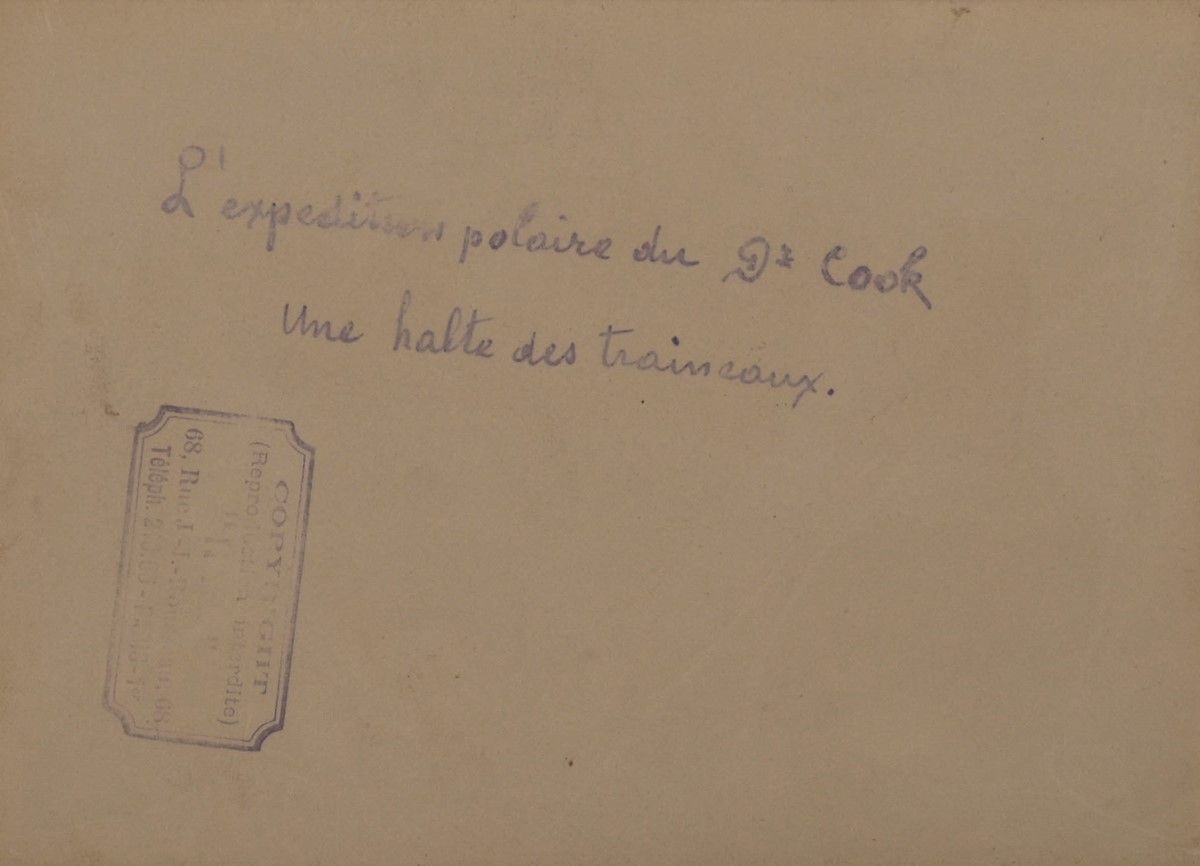 L'expedition polaire du Dr Cook
Une halte des traineaux.
COPYRIGHT
(Reproduction interdite)
68, Rue J.-J.- 68
Téléph.